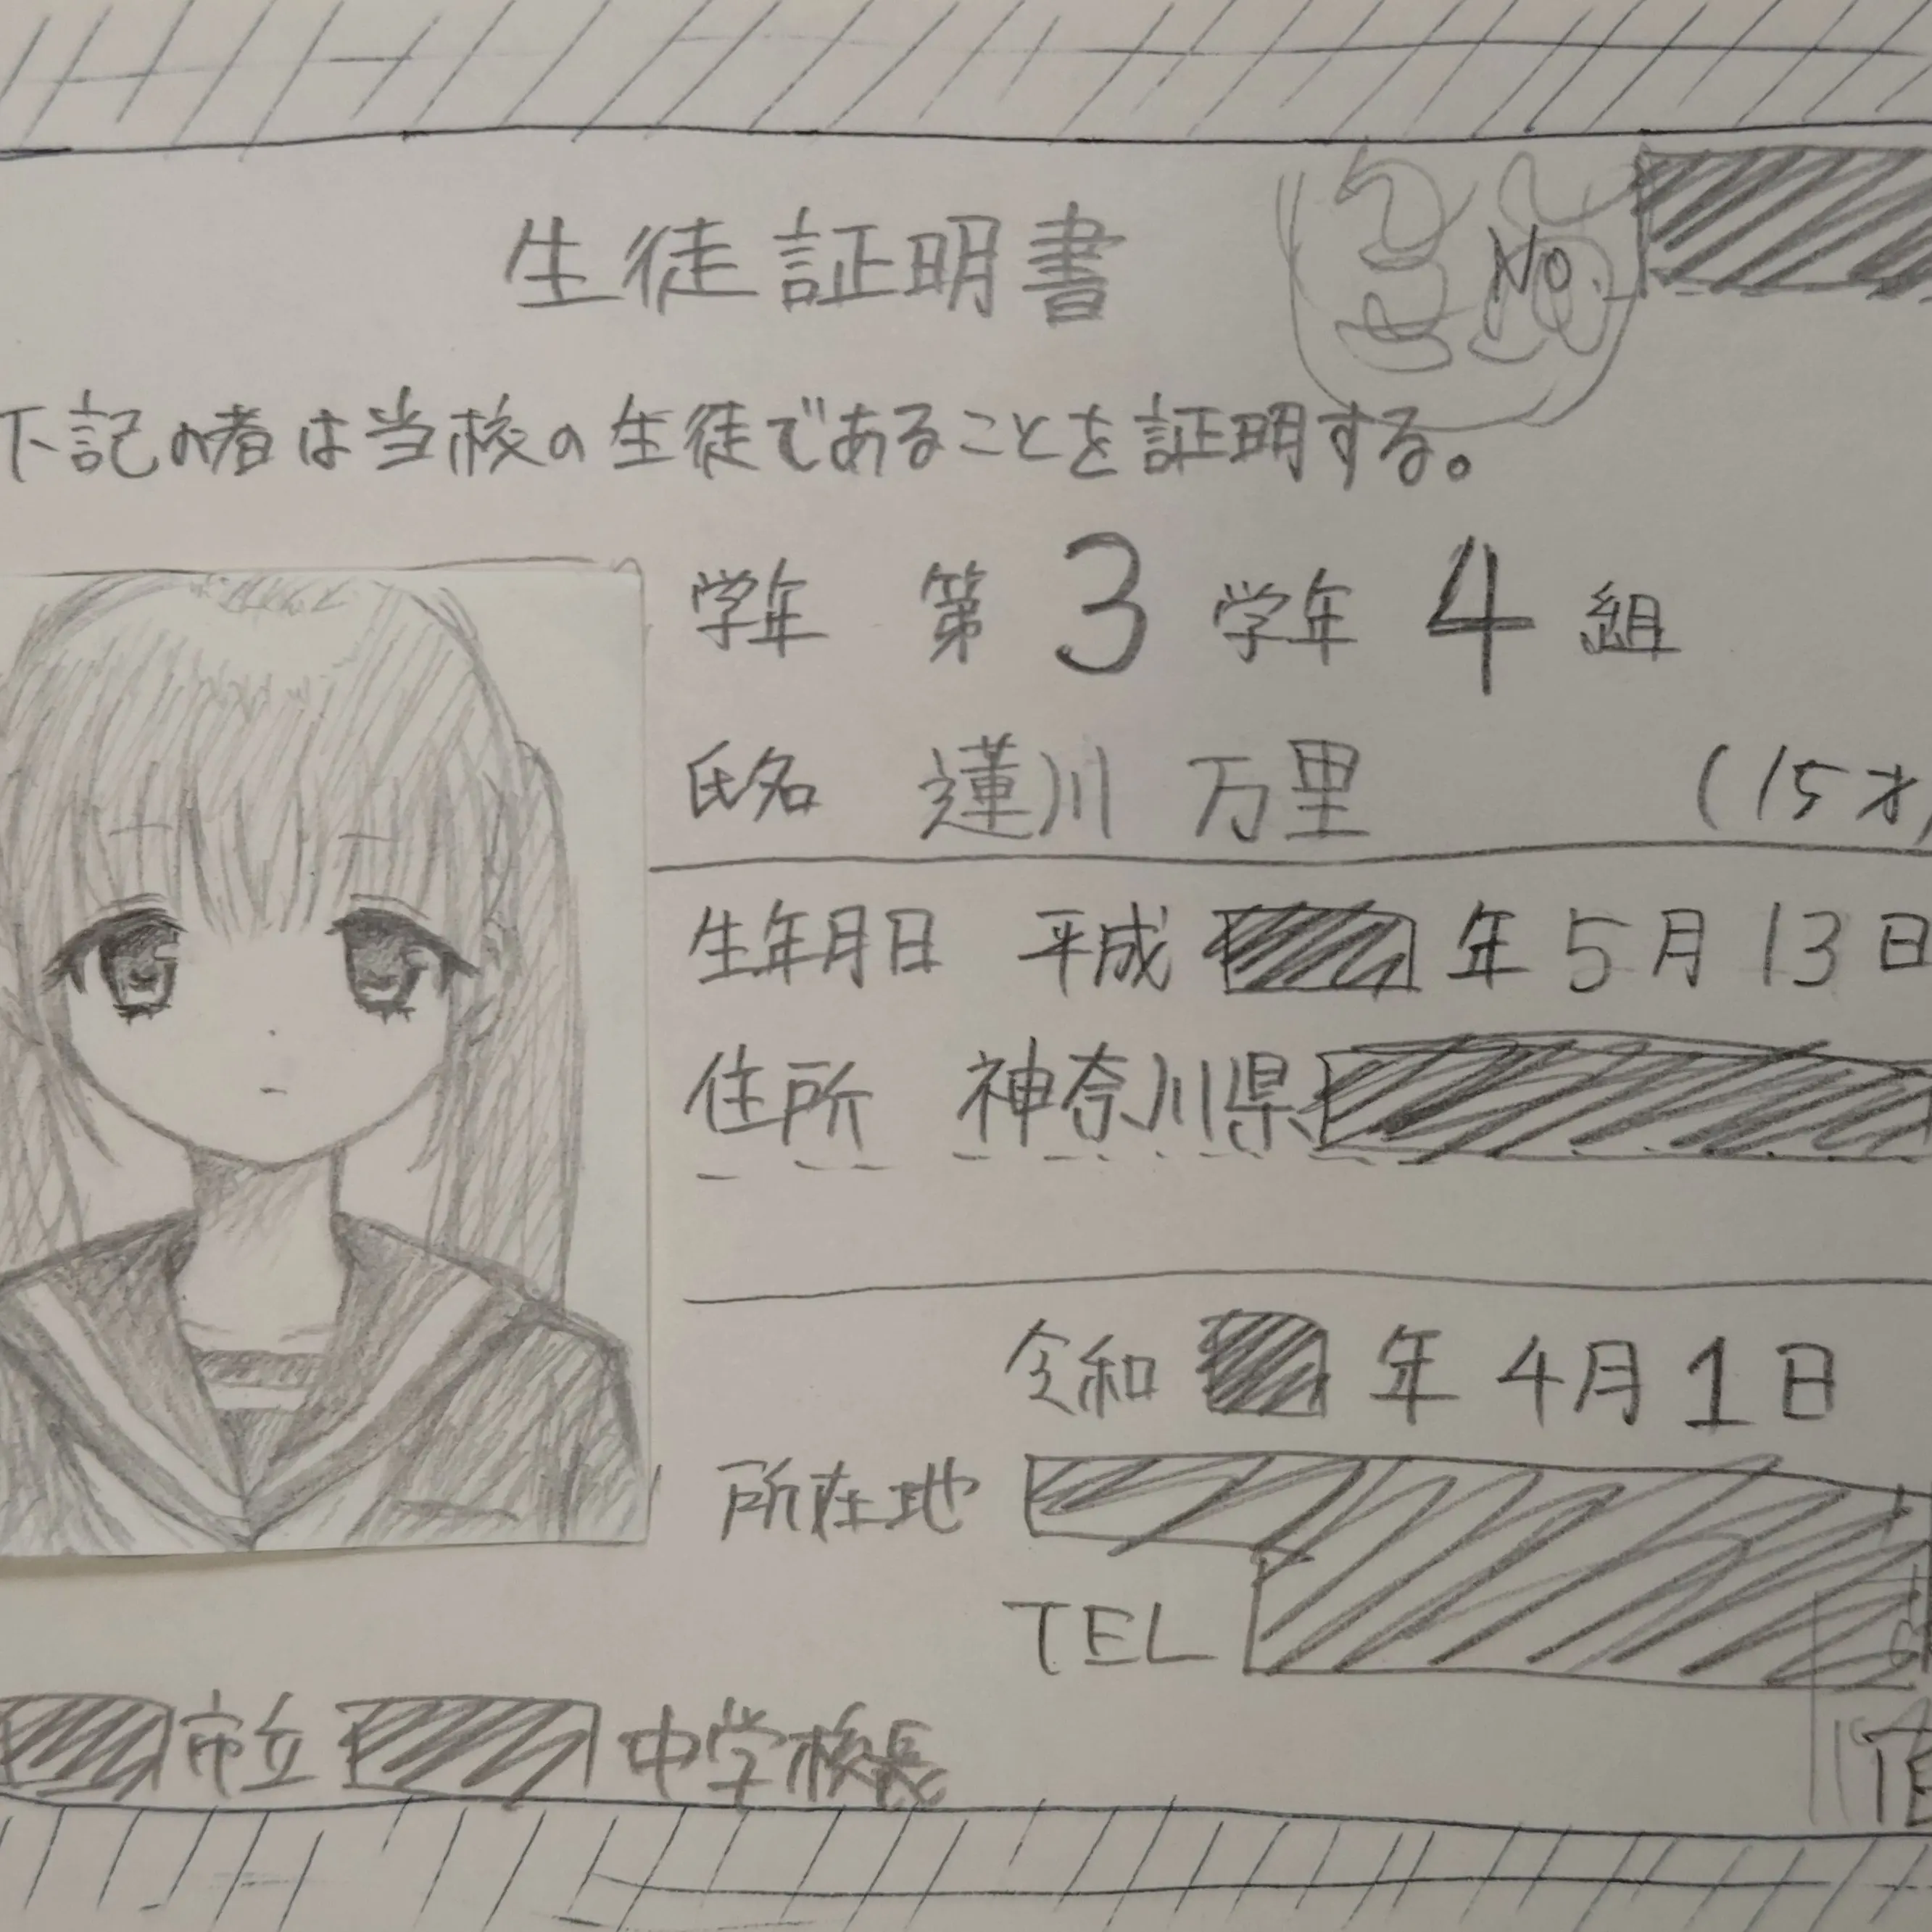 No.
生徒証明書
下記の者は当校の生徒であることを証明する。
学年 第 3 学年 4 組
氏名 蓮川 万里 (15才)
生年月日 平成 年 5月 13日
住所 神奈川県
令和 年 4月 1日
所在地
TEL
市立 中学校長